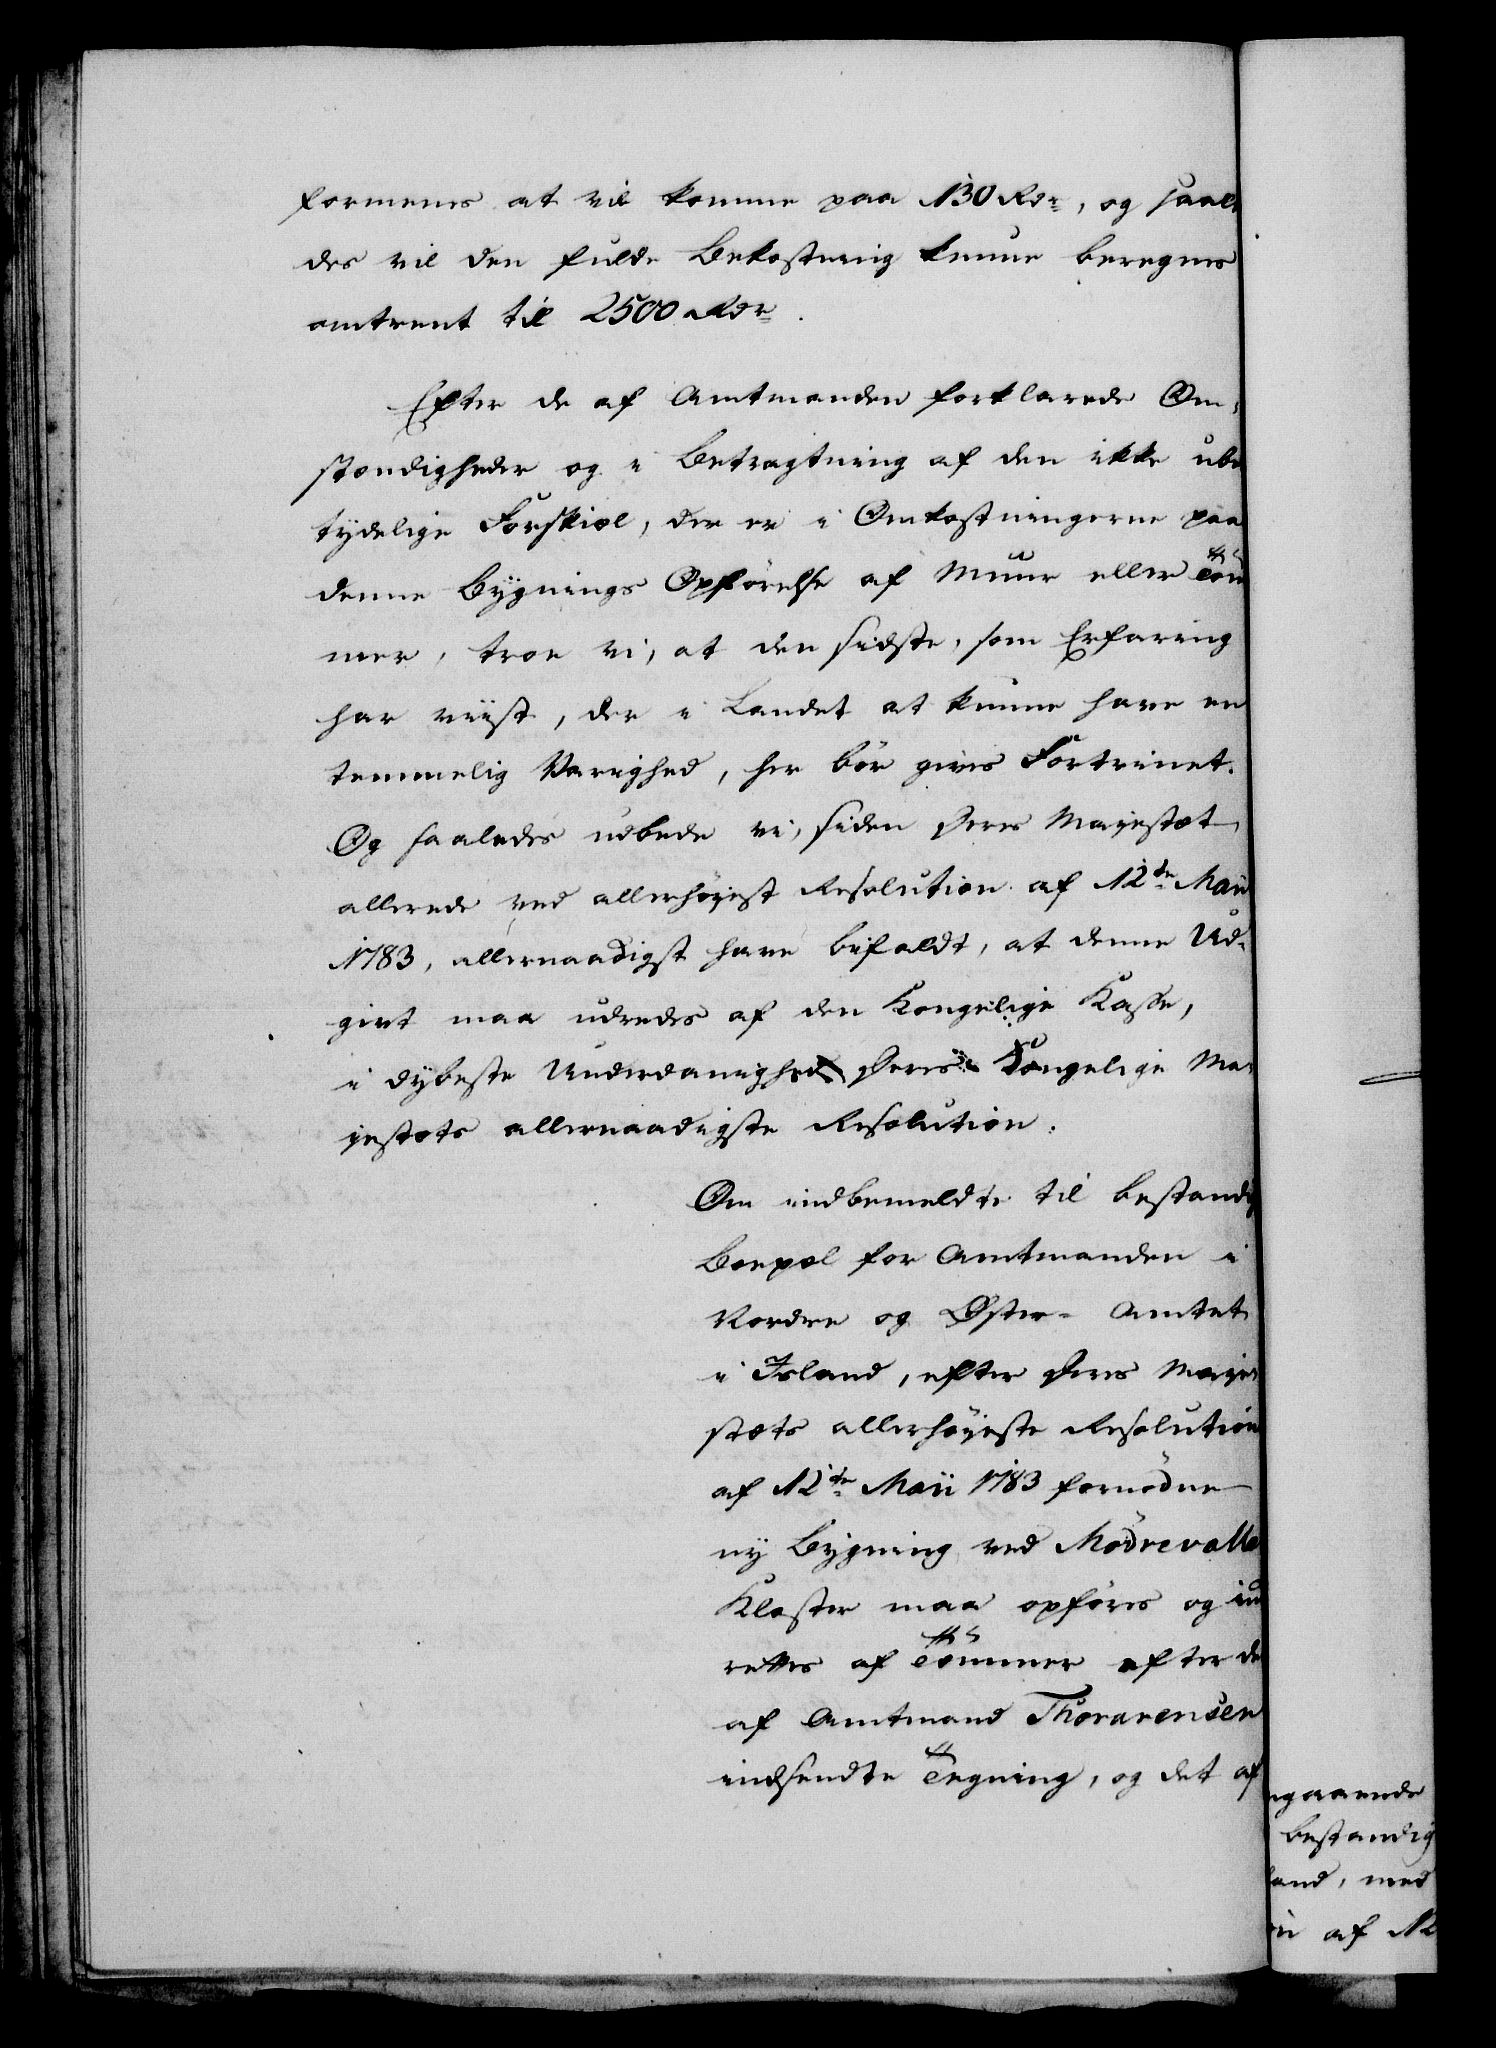 formenes at vil komme paa 130 Rdr, og saale
des vil den fulde Bekostning kunne beregnes
omtrent til 2500 Rdr.
Efter de af Amtmanden forklarede Om-
stændigheder og i Betragtning af den ikke ube
tydelige Forskiæl, der er i Omkostningerne paa
denne Bygnings Opförelse af Muur eller Töm
mer, troe vi, at den sidste, som Erfaring
har viist, der i Landet at kunne have en
temmelig Varighed, her bör gives Fortrinet.
Og saaledes udbede vi, siden Deres Majestæt
allerede ved allerhöjest Resolution af 12te Maii
1783, allernaadigst have bifaldt, at denne Ud-
givt maa udredes af den Kongelige Kasse,
i dybeste Underdanighed Deres Kongelige Ma-
jestæts allernaadigste Resolution.
Om indbemeldte til bestandig
Boepæl for Amtmanden i
Nordre og Öster-Amtet
i Island, efter Deres Maje-
stæts allerhöjeste Resolution
af 12te Maii 1783 fornödne
ny Bygning ved Mödrevalle
Kloster maa opföres og ind
rettes af Tömmer efter de
af Amtmand Thorarensen
indsendte Tegning, og det af
ngaaende
bestandig
land, med
on af 12